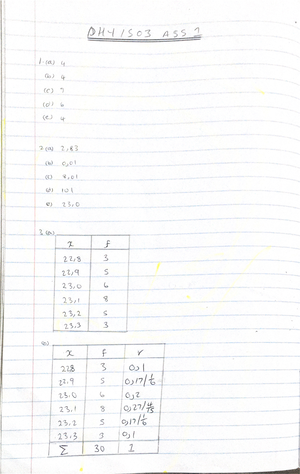 DMY1503 ASS 2
1.(a) 4
(b) 4
(c) 7
(d) 6
(e) 4
2.(a) 2,83
(b) 0,01
(c) 8,01
(d) 101
(e) 23,0
3.(a)
x f
22,8 3
22,9 5
23,0 6
23,1 8
23,2 5
23,3 3
(b)
x f r
22,8 3 0,1
22,9 5 0,17/1/6
23,0 6 0,2
23,1 8 0,27/4/15
23,2 5 0,17/1/6
23,3 3 0,1
Σ 30 1